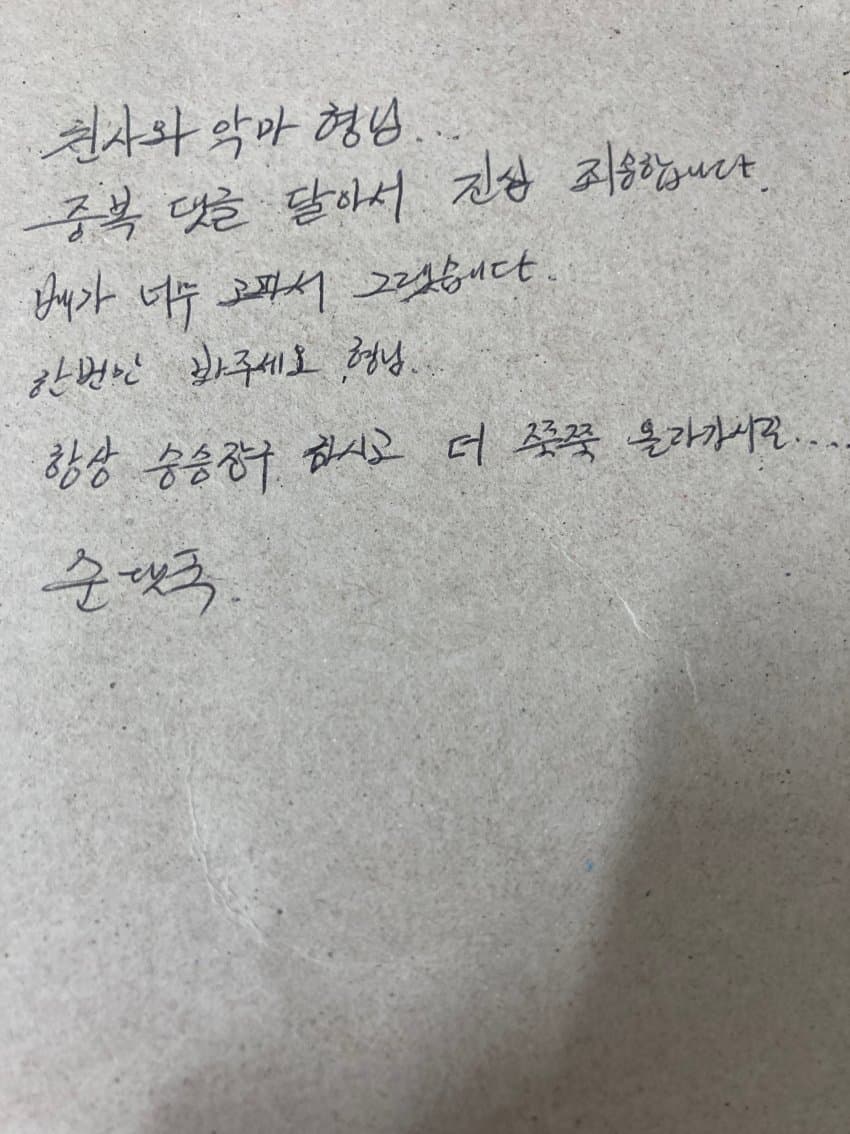 천사와 악마 형님...
중복 댓글 달아서 진심 죄송합니다.
배가 너무 고파서 그랬습니다.
한번만 봐주세요 형님..
항상 승승장구 하시고 더 쭉쭉 올라가시길....
순댓국.